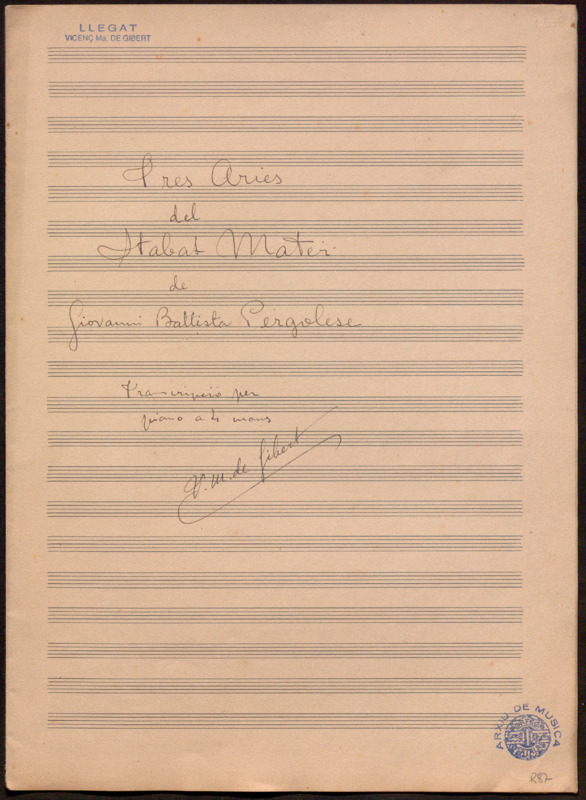 LLEGAT
VICENÇ Ma. DE GIBERT
Tres Aries
del
Stabat Mater
de
Giovanni Battista Pergolese
Transcripció per
piano a 4 mans
V. M. de Gibert
ARXIU DE MUSICA
R87